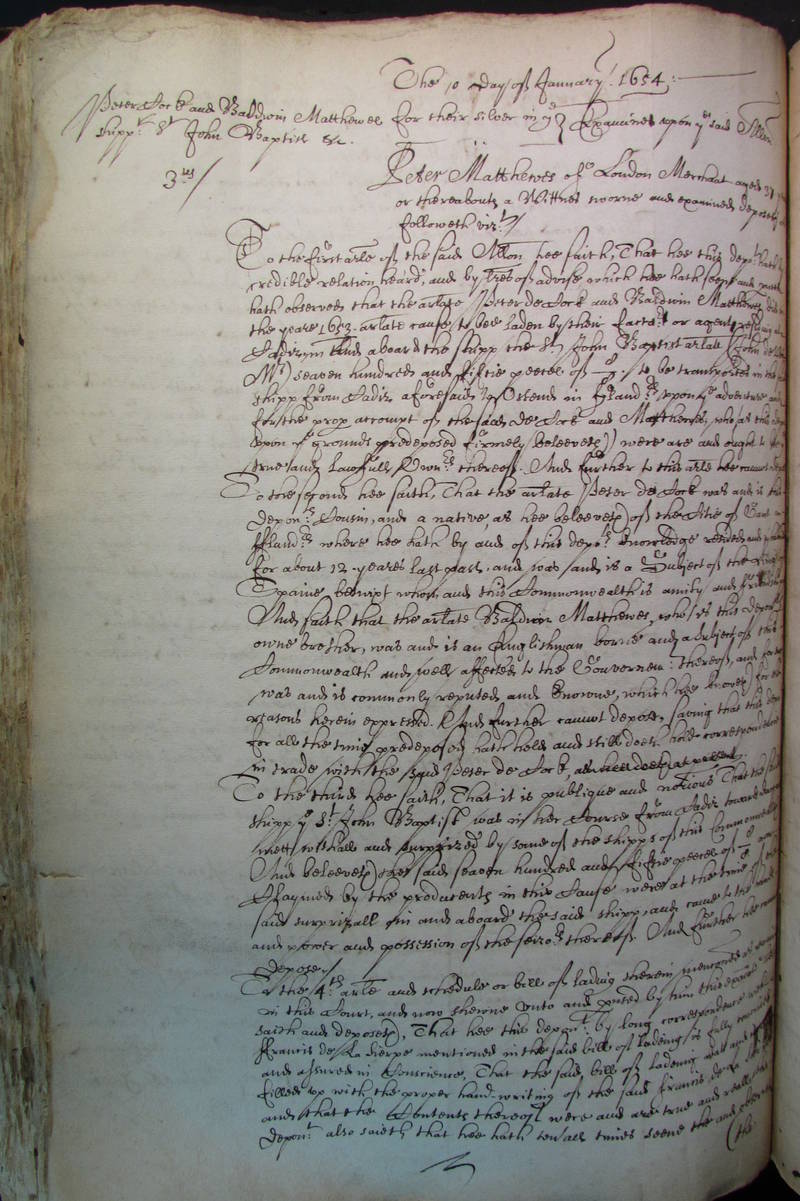 The 10 day of January. 1654:
Peter de Jock and Baldwin Matthewes for their silver in ye Examined upon ye said Allon
shipp ye St John Baptist &c.
3us/
Peter Matthewes of London Merchant aged 37
or thereabouts a Wittnes sworne and examined deposeth
followeth vizt/
To the first arle of the said Allon hee saith, That hee this depot hath
credible relation heard, and by lres of advise which hee hath seene and
hath observed that the arlate Peter de Jock and Baldwin Matthewes did in
the yeare 1653 arlate cause to bee laden by their factors or agents
Cadiz in and aboard the shipp the St John Baptist arlate (John
Mr) seaven hundred and fiftie peeces of to be transported in the said
shipp from Cadiz aforesaid to Ostend in Flandrs upon ye adventure and
for the prop accompt of the said de Jock and Matthewes, who as this
upon ye grounds predeposed firmely beleeveth) were are and ought to
true and lawfull Ownrs thereof. And further to this arle hee cannot
To the second hee saith, That the arlate Peter de Jock was and is this
deponts Cousin, and a native, as hee beleeveth of the Citie of
Flandrs where hee hath by and of this depots knowledge resided and
for about 12 yeares last past, and was and is a Subject of the King of
Spaine betwixt whom and this Commonwealth is amity and friendshipp
And saith that the arlate Baldwin Matthewes, who is this deponts
owne brother, was and is an Englishman borne and a Subject of this
Commonwealth and well affected to the Governemt thereof, and for
was and is commonly reputed and knowne, which hee knoweth for the
reasons herein expressed. And further cannot depose, saving that this
for all the time predeposed hath held and still doeth hold correspondence
in trade with the said Peter de Jock, as hee doeth at present.
To the third hee saith, That it is publique and notious That the said
shipp ye St John Baptist was in her Course from Cadiz towards
mett withall and surprized by some of the shipps of this Commonwealth
And beleeveth the said seaven hundred and fiftie peeces of
claymed by the producents in this Cause were at the time of the
said surprizall in and aboard the said shipp, and came to the
and power and possession of the seizors thereof. And further hee cannot
depose/
To the 4th arle and schedule or bill of lading therein mentioned
in this Court, and now shewne unto and pused by him this
saith and deposeth, That hee this depont by long correspondence with
Francis de la Sierpe mentioned in the said bill of lading is fully
and assured in Conscience, That the said bill of lading was and is
filled up with the proper hand-writing of the said Francis de la
and that the Contents thereof were and are true and reall
Depont also saieth that hee hath sevall times seene the
(the